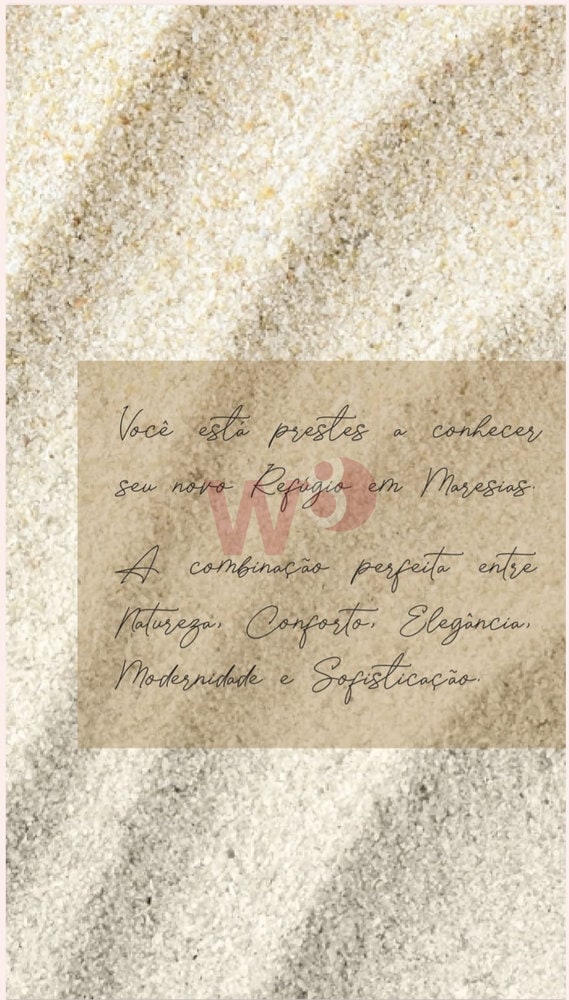 Você está prestes a conhecer
seu novo Refúgio em Maresias.
A combinação perfeita entre
Natureza, Conforto, Elegância,
Modernidade e Sofisticação.